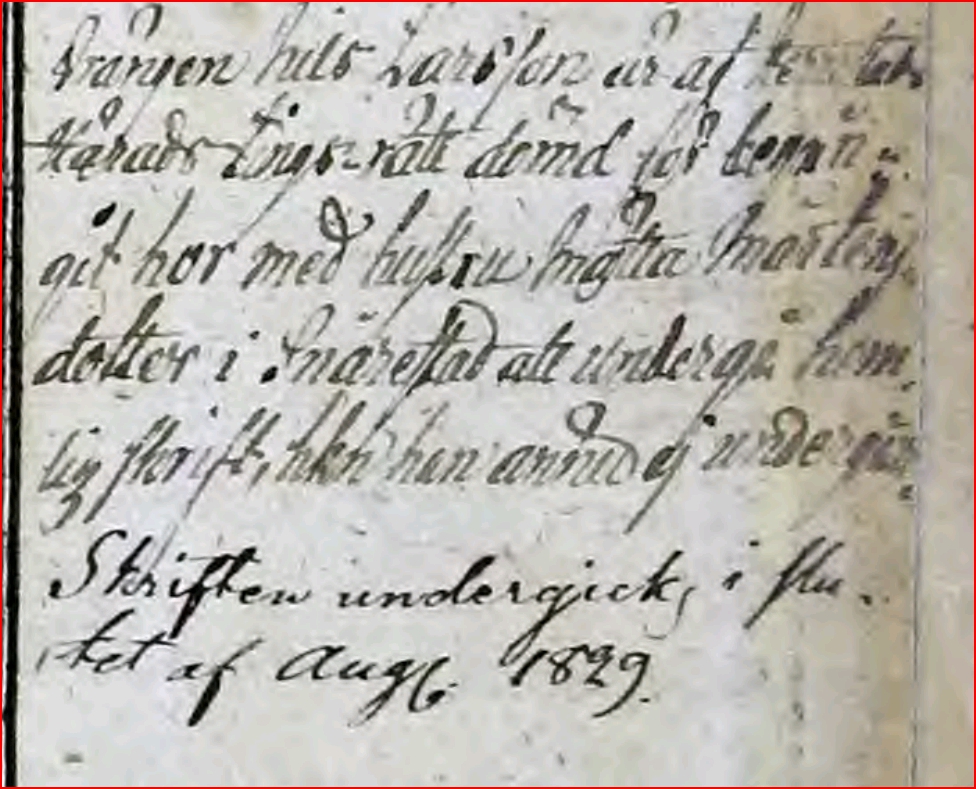 Drängen Nils Larsson är af
Härads Tings-rätt dömd för begån-
git hor med hustru Ingrta Mårtens-
dotter i Snårestad att undergå hem-
lig skrift, hkn han ännu ej undergåt
Skriften undergick, i slu-
tet af Aug. 1829.